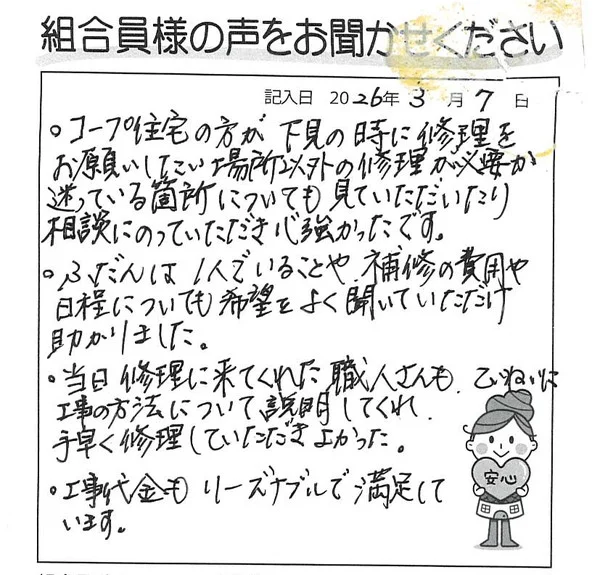 組合員様の声をお聞かせください
記入日 2026年 3 月 7 日
。コープ住宅の方が 下見の時に修理を
お願いしたい場所以外の修理が必要か
迷っている箇所についても見ていただいたり
相談にのっていただき心強かったです。
。ふだんは 1人でいることや、補修の費用や
日程についても希望をよく聞いていただけ
助かりました。
・当日 修理に来てくれた 職人さんも、ていねいに
工事の方法について 説明してくれ、
手早く修理していただきよかった。
・工事代金も リーズナブルで満足して
います。
安心